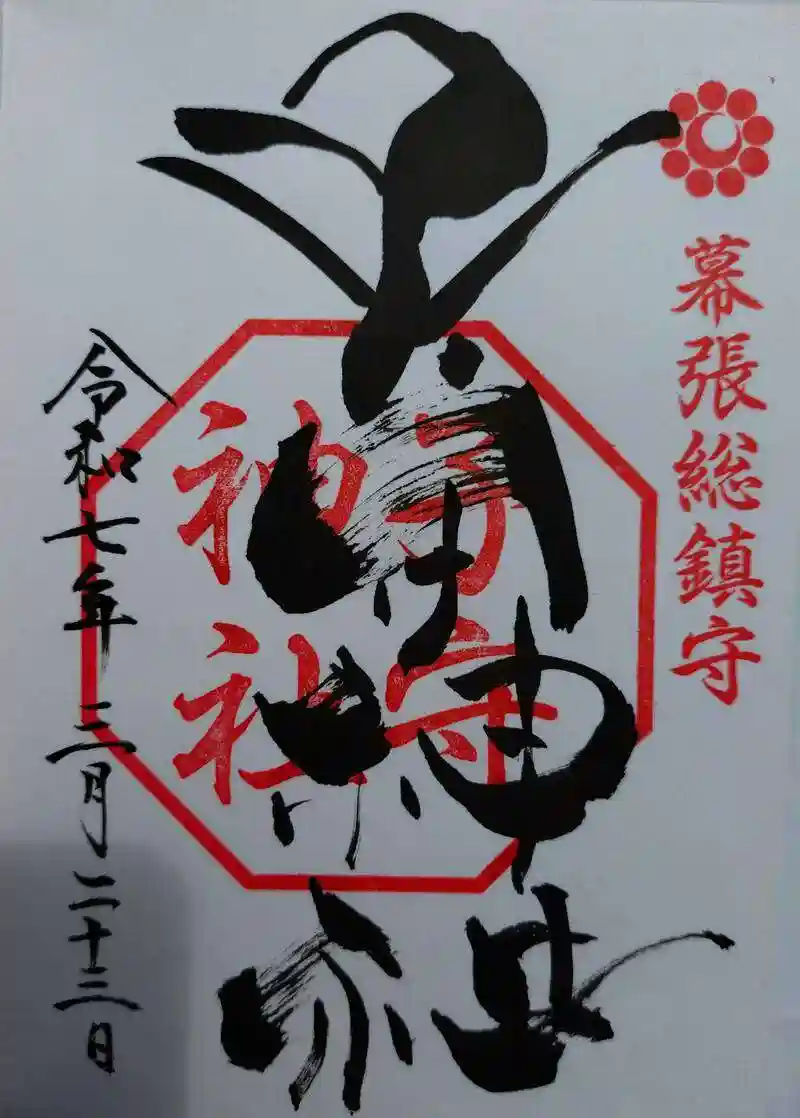 幕張総鎮守
子守神社
子守
神社
令和七年 三月二十三日